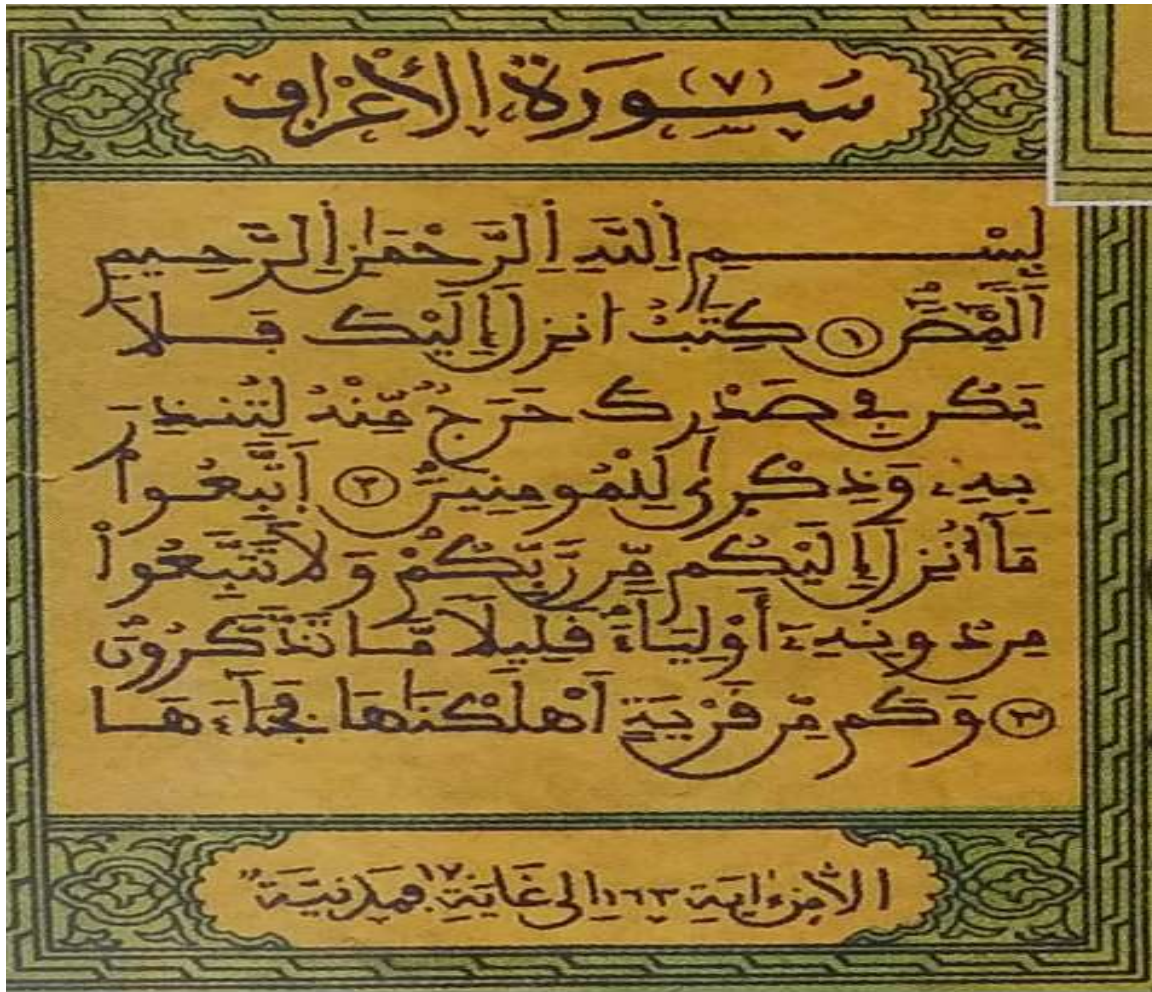 سُورَةُ الْأَعْرَافِ (٧)
بِسْمِ اِللَّهِ اِلرَّحْمَٰنِ اِلرَّحِيمِ
أَلَٓمِّٓصَٓ ١ كِتَٰبٌ انزِلَ إِلَيْكَ فَلَا
يَكُن فِي صَدْرِكَ حَرَجٌ مِّنْهُ لِتُنذِرَ
بِهِۦ وَذِكْرَىٰ لِلْمُومِنِينَ ٢ اَتَّبِعُواْ
مَآ أُنزِلَ إِلَيْكُم مِّن رَّبِّكُمْ وَلَا تَتَّبِعُواْ
مِن دُونِهِۦٓ أَوْلِيَآءَ قَلِيلًا مَّا تَذَّكَّرُونَ
٣ وَكَم مِّن قَرْيَةٍ اَهْلَكْنَٰهَا فَجَآءَهَا
إلا من ءاية ١٦٣ إلى غاية ١٧٠ فمدنية